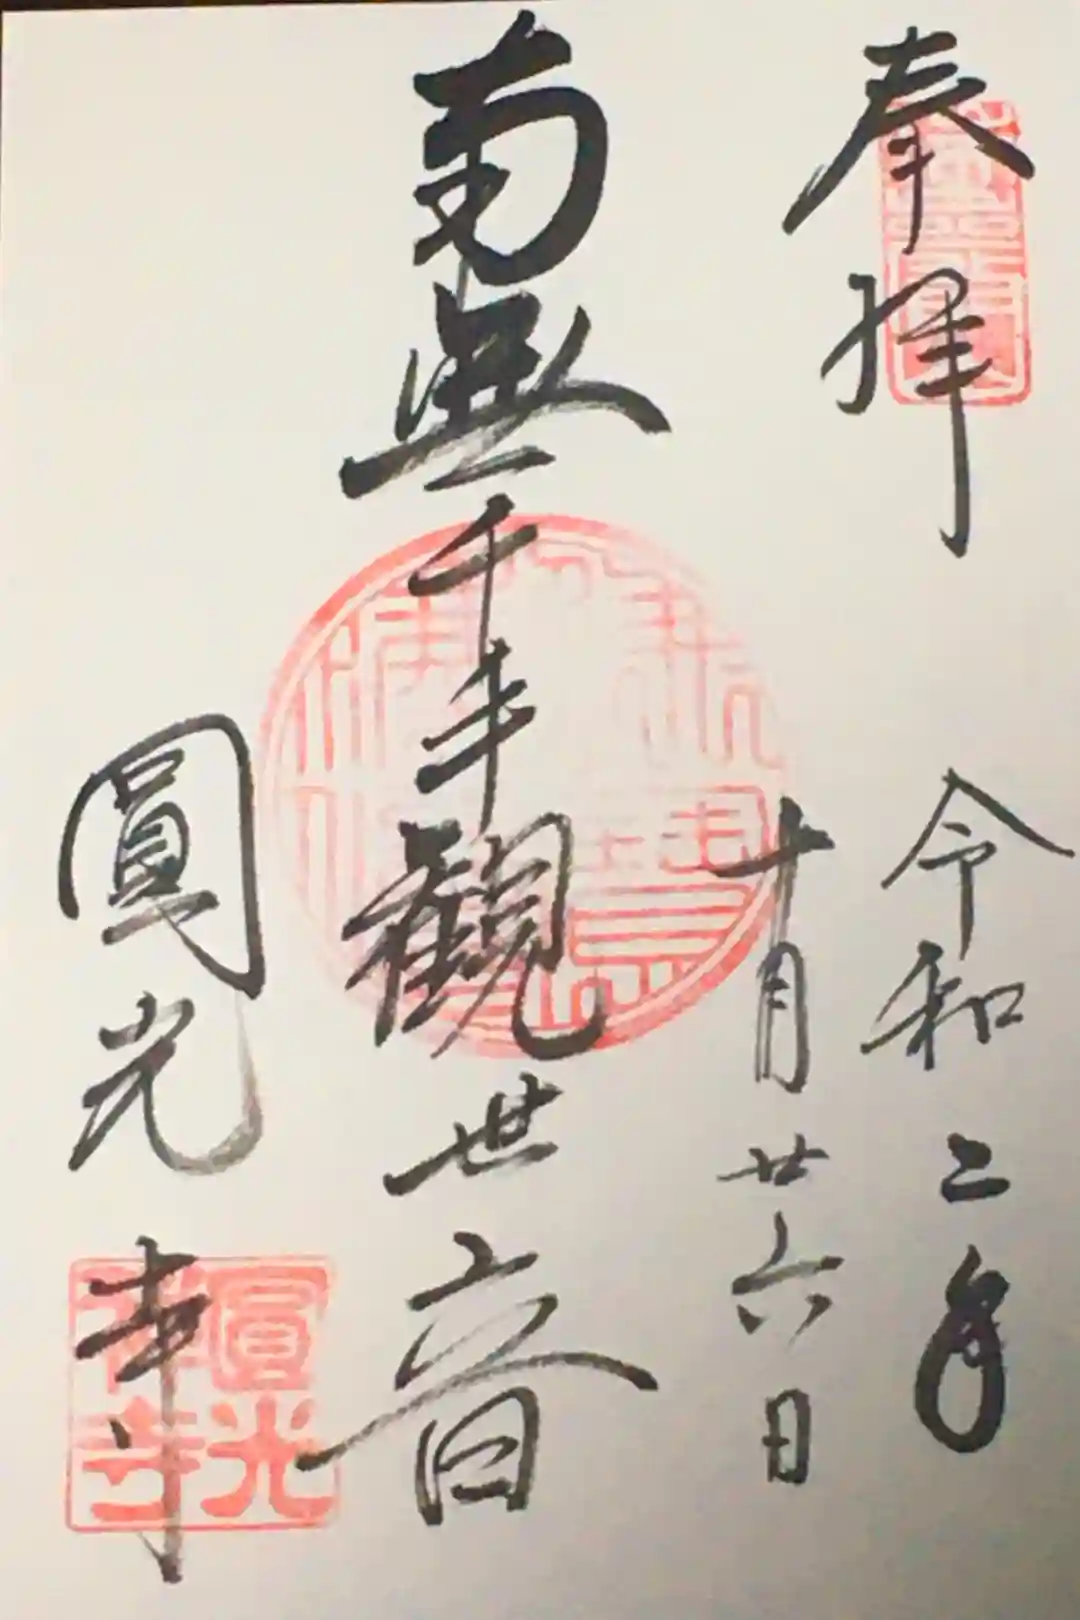 奉拝
令和二年
十月廿六日
南無千手観世音
圓光寺
圓光
禅寺